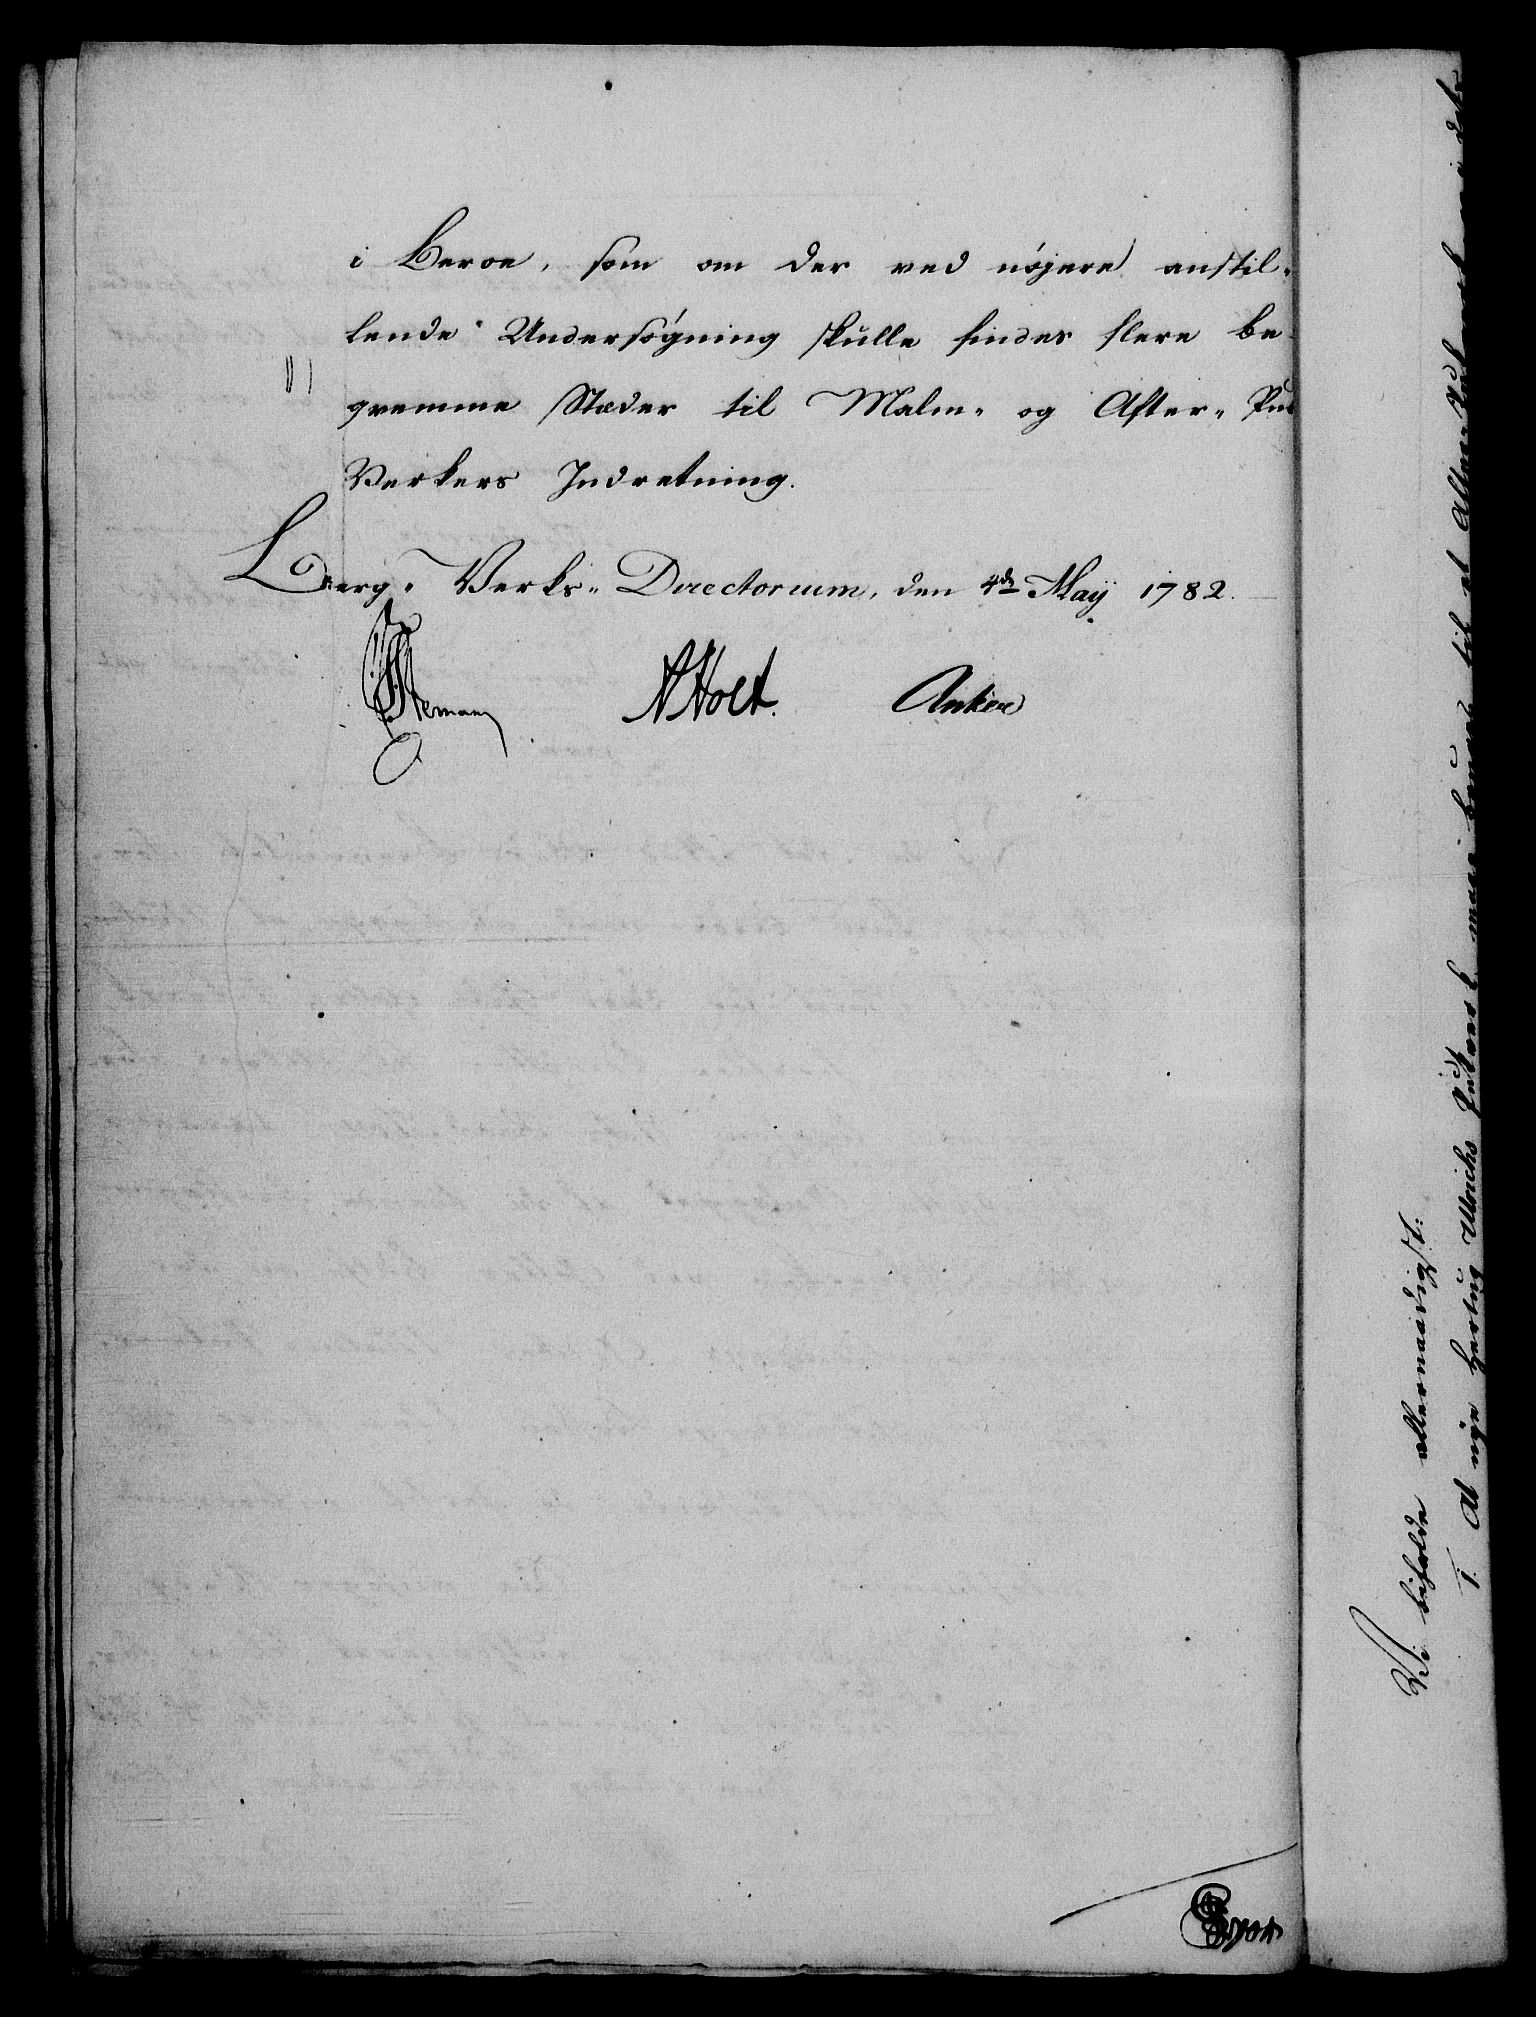 i Beroe, som om der ved nøjere anstil-
lende Undersøgning skulle findes flere be-
qvemme Stæder til Malm- og After-
Verkers Indretning.
Berg-Verks-Directorium, den 4de Maÿ 1782.
Stemann
AHolt.
Anker
Vi bifalde allernaadigst:
1. At nÿe Hertug Ulrichs Pukverk maae til at